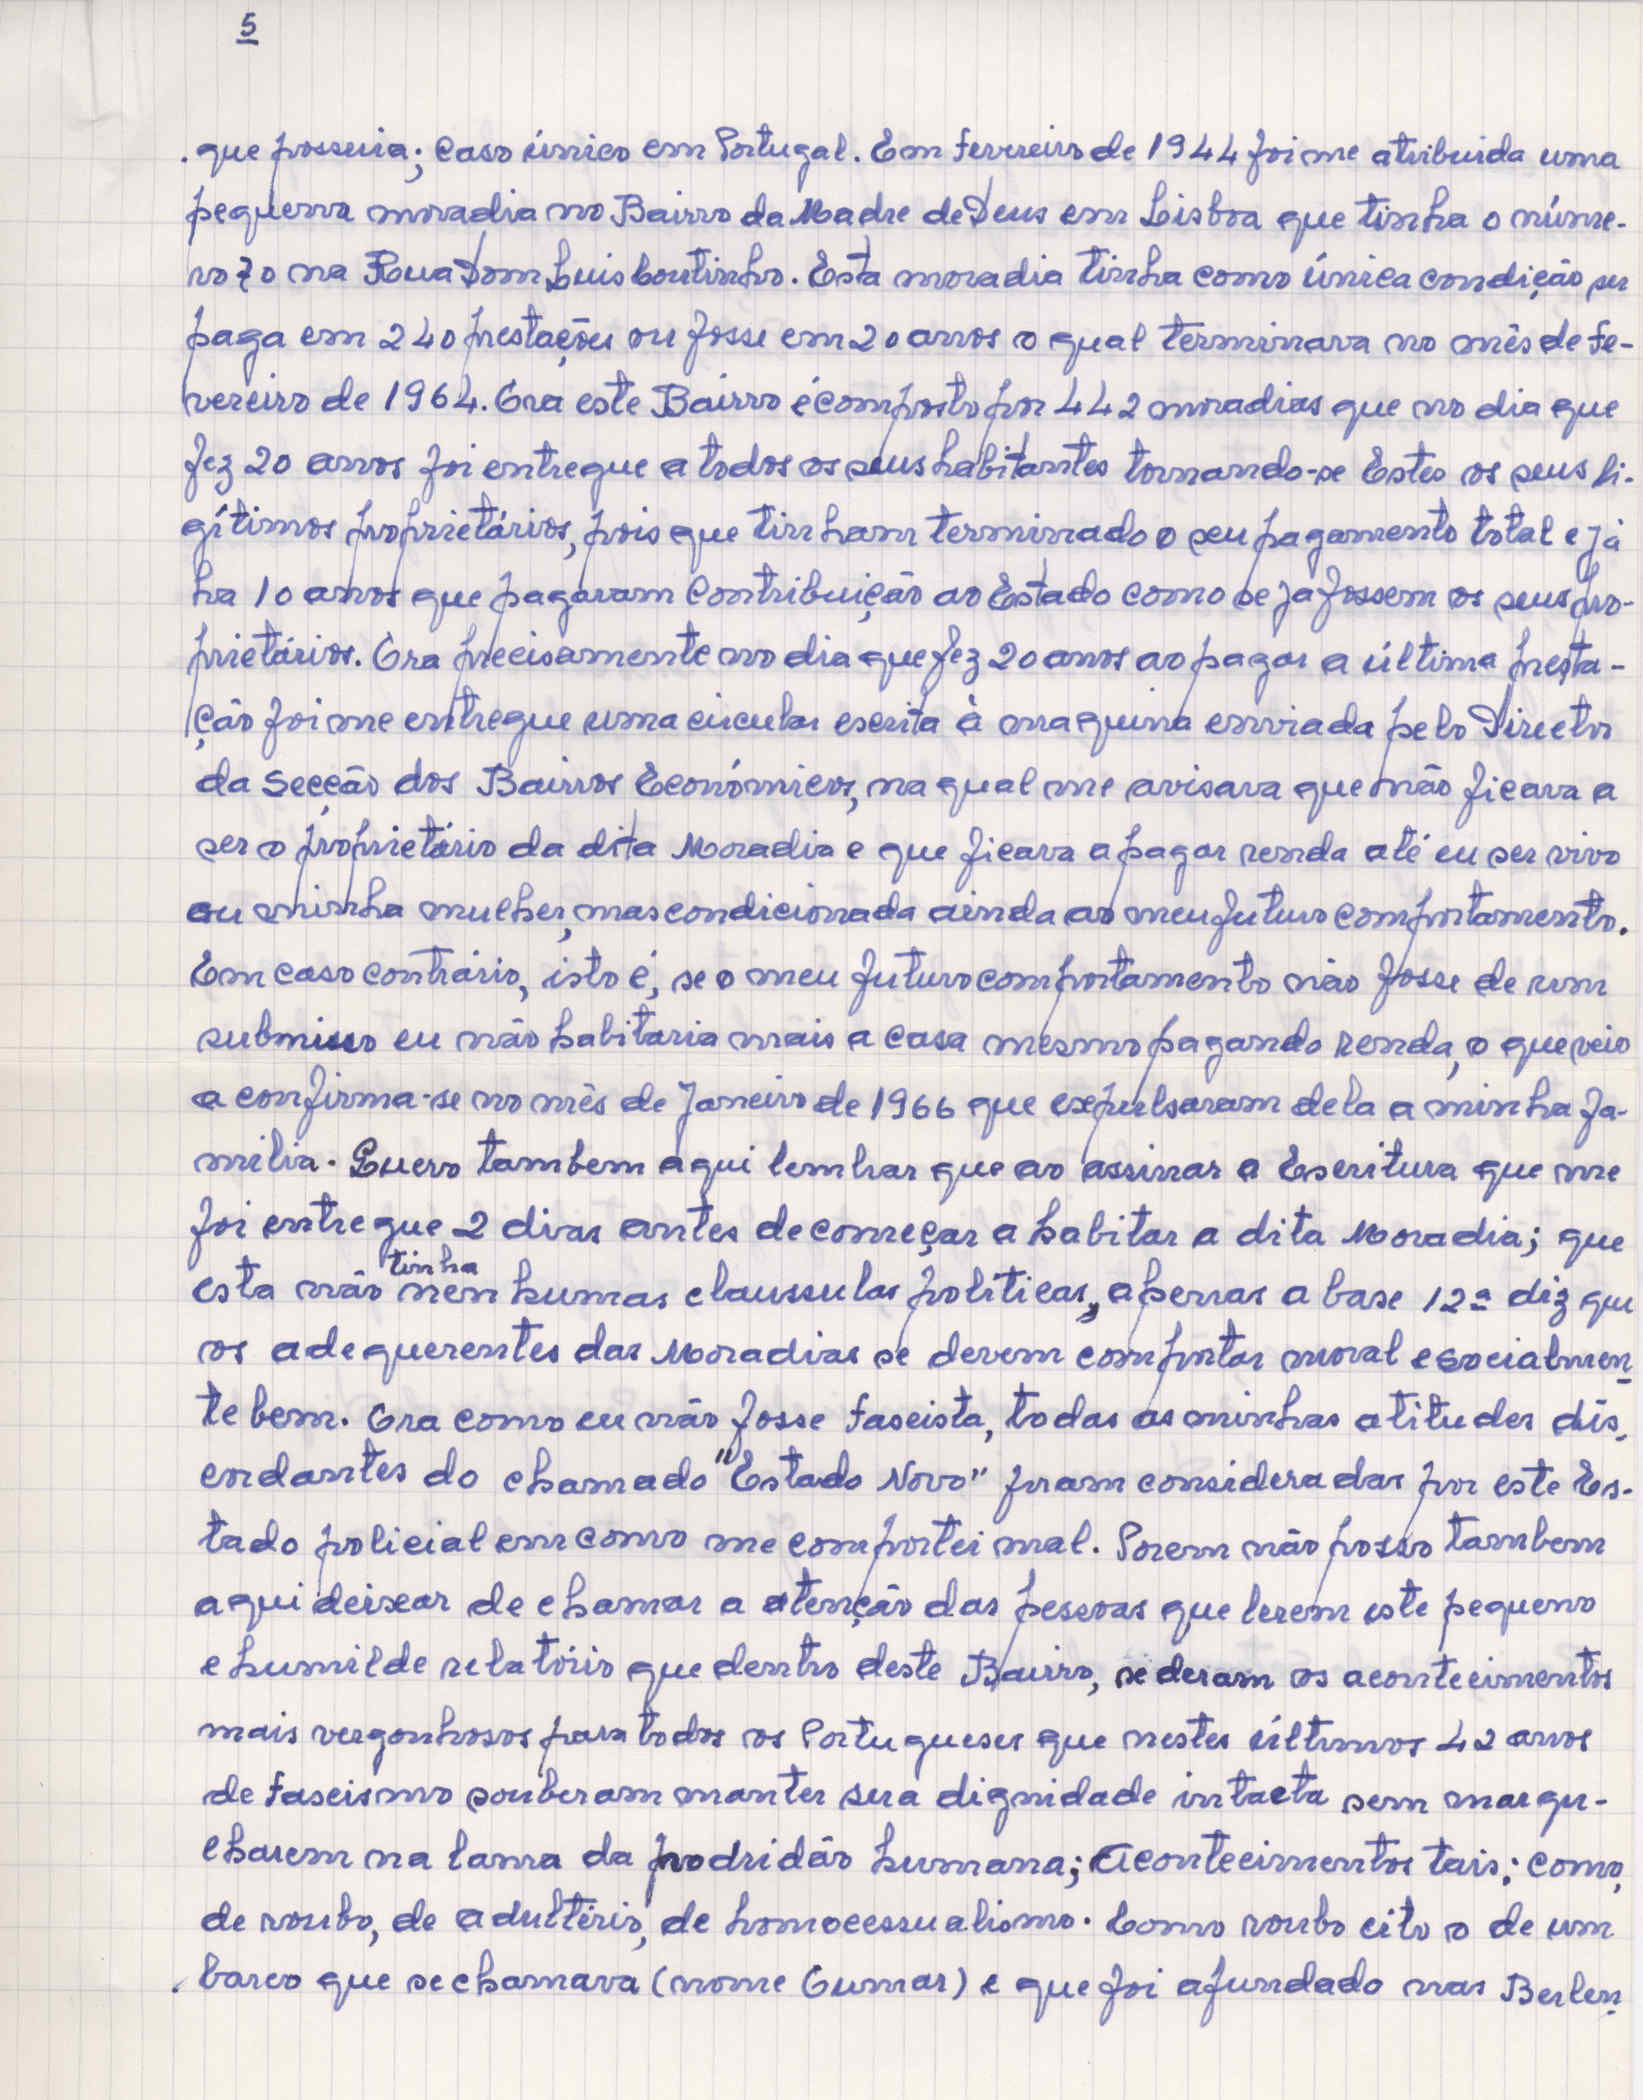 5
. que possuia; caso único em Portugal. Em fevereiro de 1944 foi me atribuida uma
pequena moradia no Bairro da Madre de Deus em Lisboa que tinha o núme-
ro 70 na Rua Dom Luis Coutinho. Esta moradia tinha como única condição ser
paga em 240 prestações ou fosse em 20 anos o qual terminava no mês de fe-
vereiro de 1964. Ora este Bairro é composto por 442 moradias que no dia que
fez 20 anos foi entregue a todos os seus habitantes tornando-se Estes os seus li-
gítimos proprietários, pois que tinham terminado o seu pagamento total e já
ha 10 anos que pagavam contribuição ao Estado como se ja fossem os seus pro-
prietários. Ora precisamente no dia que fez 20 anos ao pagar a última presta-
ção foi me entregue uma circular escrita à maquina enviada pelo Director
da Secção dos Bairros Económicos, na qual me avisava que não ficava a
ser o proprietário da dita Moradia e que ficava a pagar renda até eu ser vivo
ou minha mulher, mas condicionada ainda ao meu futuro comportamento.
Em caso contrário, isto é, se o meu futuro comportamento não fosse de um
submisso eu não habitaria mais a casa mesmo pagando renda, o que veio
a confirma-se no mês de Janeiro de 1966 que expulsaram dela a minha fa-
milia. Quero tambem aqui lembrar que ao assinar a Escritura que me
foi entregue 2 dias antes de começar a habitar a dita Moradia; que
esta não tinha nenhumas claussulas políticas, apenas a base 12ª diz que
os adequerentes das Moradias se devem comportar moral e socialmen-
te bem. Ora como eu não fosse fascista, todas as minhas atitudes dis-
cordantes do chamado "Estado Novo" foram consideradas por este Es-
tado policial em como me comportei mal. Porem não posso tambem
aqui deixar de chamar a atenção das pessoas que lerem este pequeno
e humilde relatório que dentro deste Bairro, se deram os acontecimentos
mais vergonhosos para todos os Portugueses que nestes últimos 42 anos
de fascismo souberam manter sua dignidade intacta sem margu-
lharem na lama da podridão humana; Acontecimentos tais; como,
de roubo, de adultério, de homocessualismo. Como roubo cito o de um
barco que se chamava (nome Gumar) e que foi afundado nas Berlen-